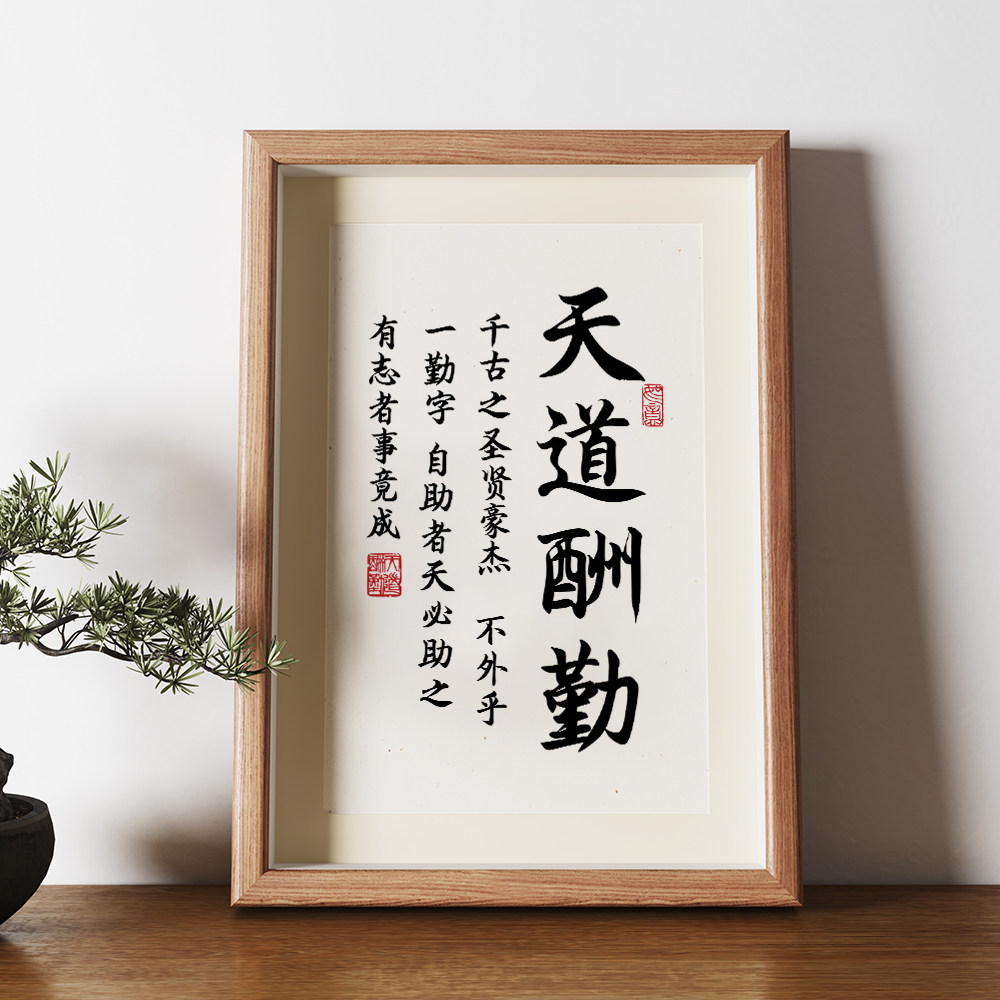 天道酬勤
如意
千古之圣贤豪杰 不外乎
一勤字 自助者天必助之
有志者事竟成
天道酬勤